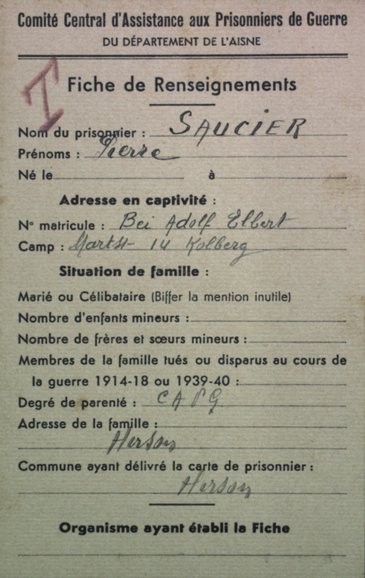 Comité Central d'Assistance aux Prisonniers de Guerre
DU DÉPARTEMENT DE L'AISNE
T
Fiche de Renseignements
Nom du prisonnier : SAUCIER
Prénoms : Pierre
Né le à
Adresse en captivité :
N° matricule : Bei Adolf Elbert
Camp : Marktst 14 Kolberg
Situation de famille :
Marié ou Célibataire (Biffer la mention inutile)
Nombre d'enfants mineurs :
Nombre de frères et sœurs mineurs :
Membres de la famille tués ou disparus au cours de
la guerre 1914-18 ou 1939-40 :
Degré de parenté : CAPG
Adresse de la famille :
Herson
Commune ayant délivré la carte de prisonnier :
Herson
Organisme ayant établi la Fiche